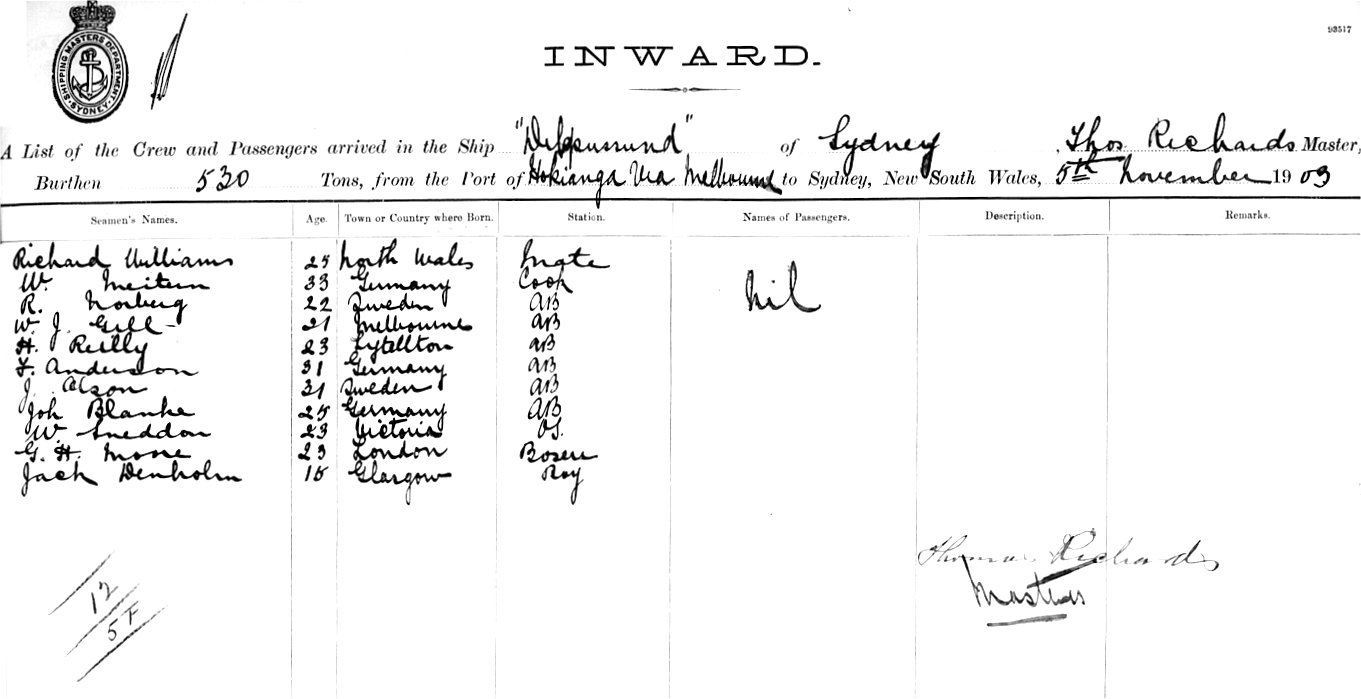 SHIPPING MASTERS DEPARTMENT SYDNEY
93517
INWARD.
A List of the Crew and Passengers arrived in the Ship of Sydney, Thos Richards Master,
Burthen 530 Tons, from the Port of Hokianga Via Melbourne to Sydney, New South Wales, 5th November 1903
Seamen's Names. Age. Town or Country where Born. Station. Names of Passengers. Description. Remarks.
Richard Williams 25 North Wales Mate
W. 33 Germany Cook nil
R. Norberg 22 Sweden AB
W. J. Gill 21 Melbourne AB
H. Reilly 23 Lytellton AB
F. Anderson 31 Germany AB
J. Olson 31 Sweden AB
Joh Blanke 25 Germany AB
W. Sneddon 23 Victoria OS.
G. H. Moore 23 London
Jack Denholm 15 Glasgow
Thomas Richards
12
5F